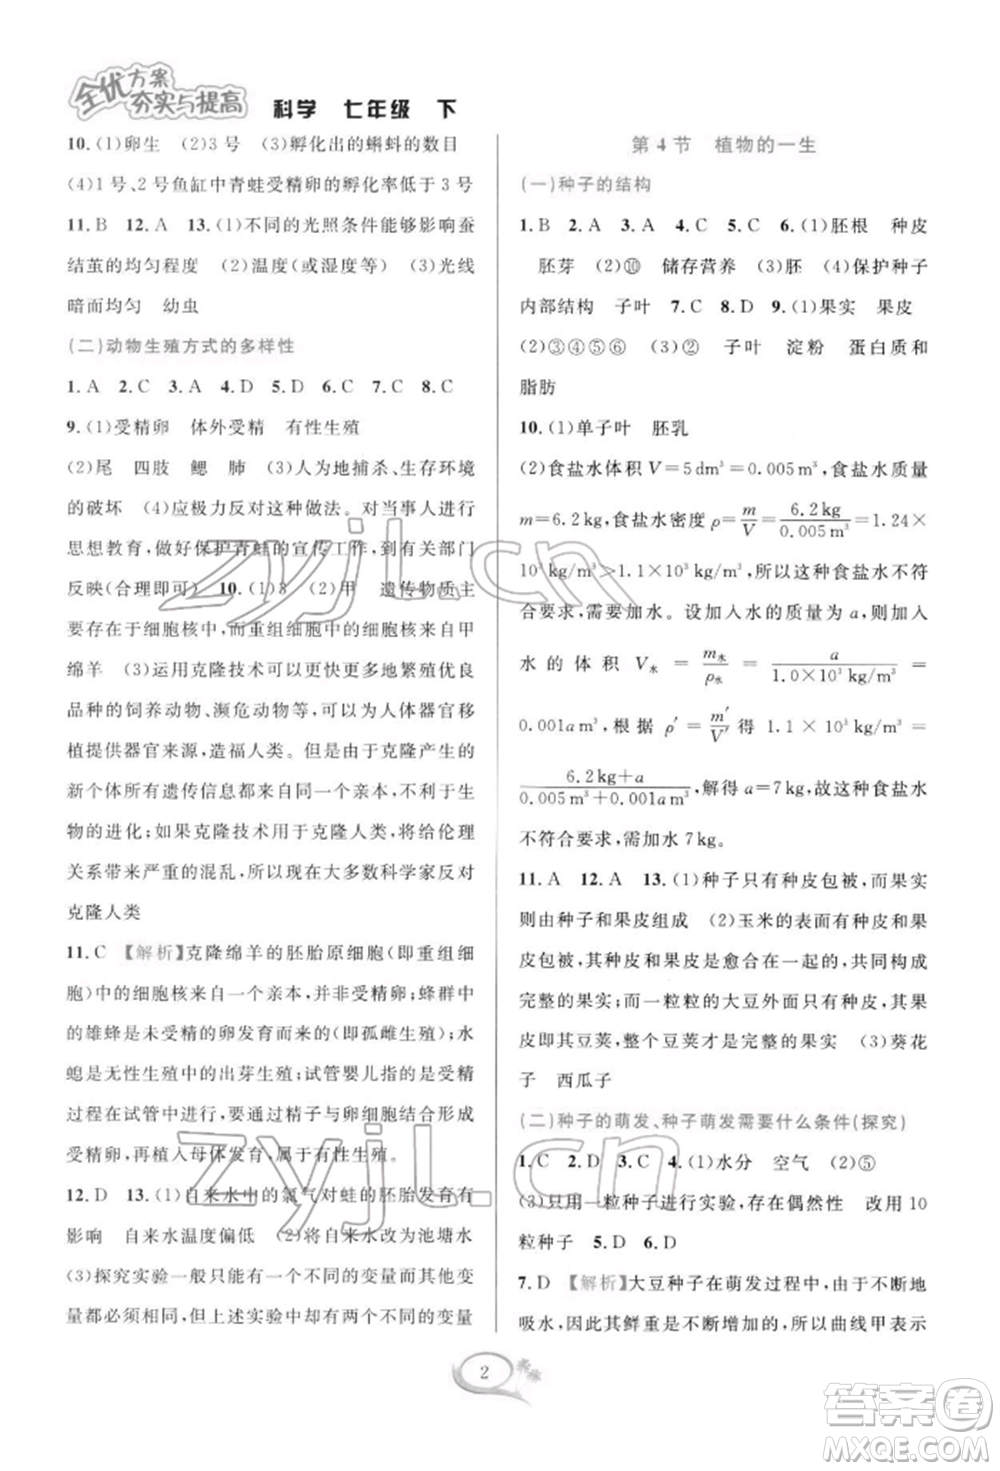 全优方案
夯实与提高
科学 七年级 下
10.(1)卵生 (2)3号 (3)孵化出的蝌蚪的数目
(4)1号、2号鱼缸中青蛙受精卵的孵化率低于3号
11.B 12.A 13.(1)不同的光照条件能够影响蚕
结茧的均匀程度 (2)温度(或湿度等) (3)光线
暗而均匀 幼虫
(二)动物生殖方式的多样性
1.A 2.C 3.A 4.D 5.D 6.C 7.C 8.C
9.(1)受精卵 体外受精 有性生殖
(2)尾 四肢 鳃 肺 (3)人为地捕杀、生存环境
的破坏 (4)应极力反对这种做法。对当事人进行
思想教育,做好保护青蛙的宣传工作,并向有关部门
反映(合理即可) 10.(1)3 (2)甲 遗传物质主
要存在于细胞核中,而重组细胞中的细胞核来自甲
绵羊 (3)运用克隆技术可以更快更多地繁殖优良
品种的饲养动物、濒危动物等,可以为人体器官移
植提供器官来源,造福人类。但是由于克隆产生的
新个体所有遗传信息来自一个亲本,不利于生
物的进化;如果克隆技术用于克隆人类,将给伦理
关系带来严重的混乱,所以大多数科学家反对
克隆人类
11.C 【解析】克隆绵羊的胚胎原细胞(即重组细
胞)中的细胞核来自一个亲本,并非受精卵;蜂群中
的雄蜂是未受精的卵发育而来的(即孤雌生殖);水
螅是无性生殖中的出芽生殖;试管婴儿指的是受精
过程在试管中进行,来自于精子与卵细胞结合成的
受精卵,再植入母体发育。
12.D 13.(1)自来水中的氯气对蛙的胚胎发育有
影响 自来水温度偏低 (2)将自来水改成池塘水
(3)探究实验一般只能有一个不同的变量而其他变
量都必须相同,但上述实验中却有两个不同的变量
第4节 植物的一生
(一)种子的结构
1.B 2.A 3.A 4.A 5.C 6.(1)胚根 种皮
胚芽 (2)⑩ 储存营养 (3)胚 (4)保护种子
内部结构 子叶 7.C 8.D 9.(1)果实 果皮
(2)②③④⑤⑥ (3)② 子叶 淀粉 蛋白质和
脂肪
10.(1)单子叶 胚乳
(2)食盐水体积V=5dm³=0.005m³,食盐水质量
m=6.2kg,食盐水密度ρ=m/V=6.2kg/0.005m³=1.24×
10³kg/m³>1.1×10³kg/m³,所以这种食盐水不符
合要求,需要加水。设加入水的质量为a,则加入
水的体积V水=m水/ρ水=a/1.0×10³kg/m³=
0.001am³,根据ρ′=m′/V′得1.1×10³kg/m³=
6.2kg+a/0.005m³+0.001am³,解得a=7kg,故这种食盐水
不符合要求,需加水7kg。
11.A 12.A 13.(1)种子只有种皮包被,而果实
则由种子和果皮组成 (2)玉米的表面有种皮和果
皮包被,种皮和果皮紧密结合不易分开,因此是
完整的果实;而一粒粒的大豆外面只有种皮,其果
皮即其豆荚,整个豆荚才是完整的果实 (3)葵花
子 西瓜子
(二)种子的萌发、种子萌发需要什么条件(探究)
1.C 2.D 3.C 4.(1)水分 空气 (2)⑤
(3)只用一粒种子进行实验,存在偶然性 改用10
粒种子 5.D 6.D
7.D 【解析】大豆种子在萌发过程中,由于不断地
吸水,因此其鲜重是不断增加的,所以曲线甲表示
2
zyjl.cn
zyjl.cn
答案圈
MXQE.COM